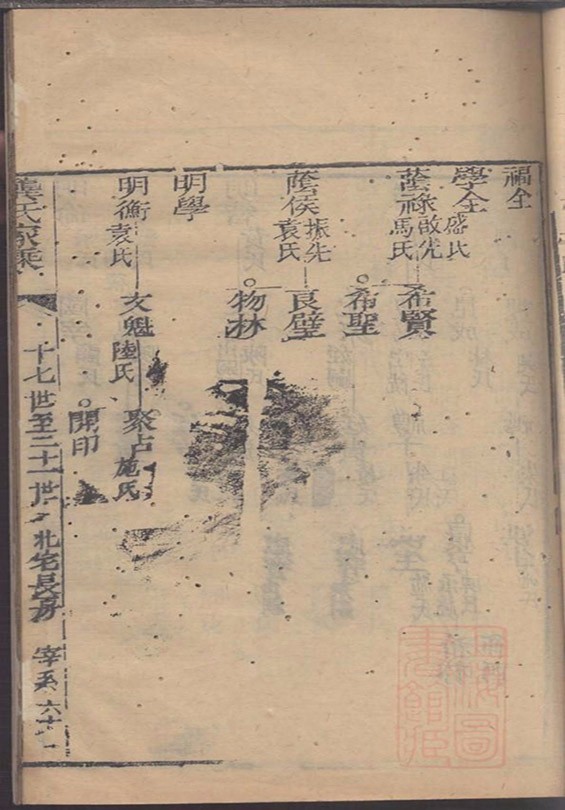 福全
學全 盛氏
蔭祿 啟先 馬氏 希賢
希聖
蔭侯 振先 袁氏 良璧
物林
明學
明衡 袁氏 文魁 陸氏 聚占 施氏
開印
龔氏家乘 十七世至二十一世 北宅長房 宰系 六十